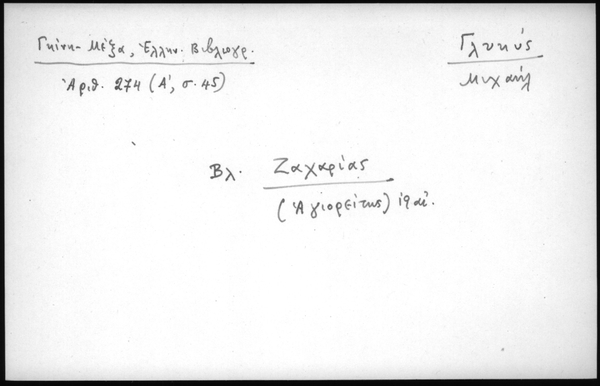 Γκίνη - Μέξα, Ἑλλην. Βιβλιογρ.
Ἀριθ. 274 (Α', σ. 45)
Γλυκύς
Μιχαήλ
Βλ. Ζαχαρίας
(Ἁγιορείτης)